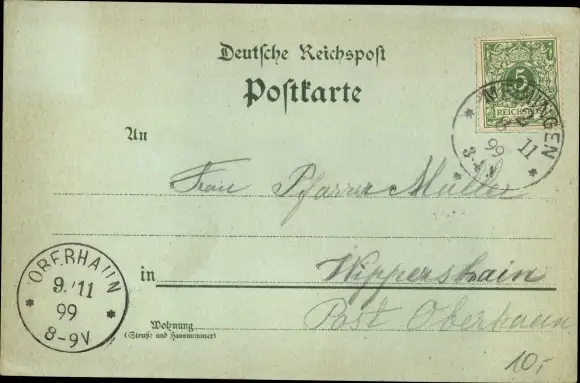 Deutsche Reichspost
Postkarte
5
REICHSPOST
99 11
3-4N
An
Frau Pfarrer Müller
OBERHAUN
9. 11
99
8-9V
in Wippershain
Wohnung
(Straße und Hausnummer)
Post Oberhaun
10,-